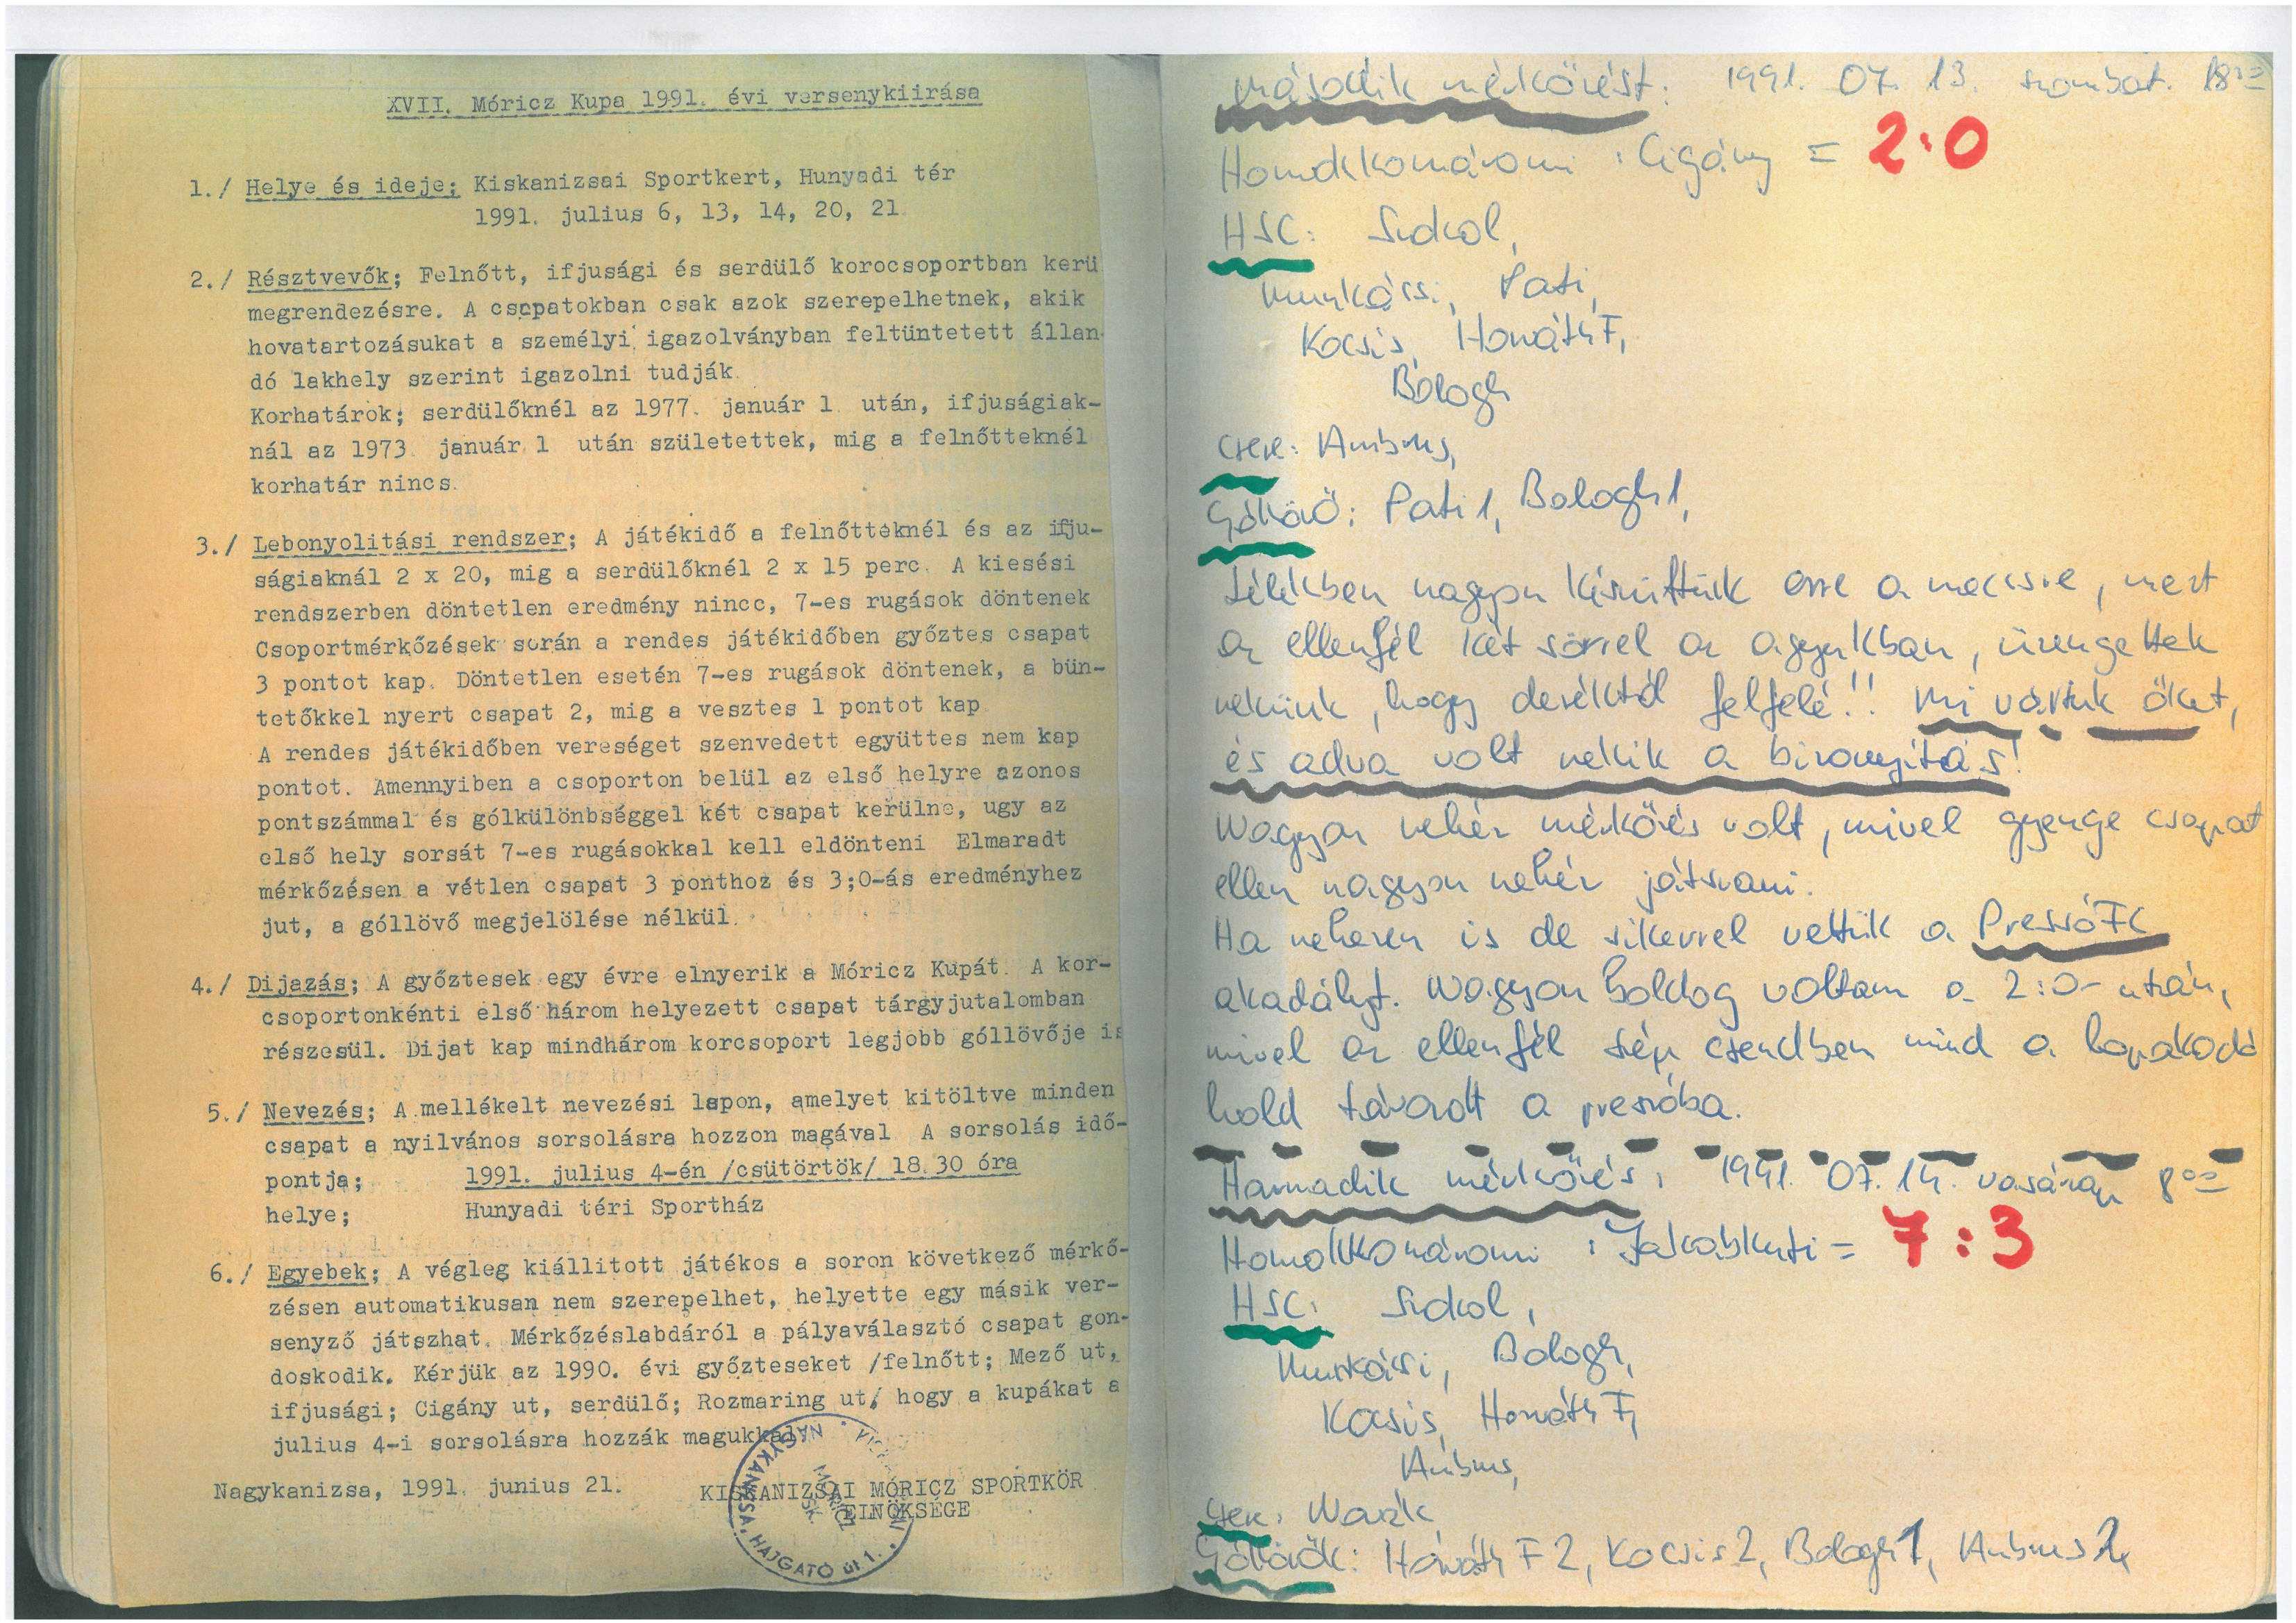 XVII. Móricz Kupa 1991. évi versenykiirása
1./ Helye és ideje; Kiskanizsai Sportkert, Hunyadi tér
1991. julius 6, 13, 14, 20, 21.
2./ Résztvevők; Felnőtt, ifjusági és serdülő korocsoportban kerü
megrendezésre. A csapatokban csak azok szerepelhetnek, akik
hovatartozásukat a személyi igazolványban feltüntetett állan-
dó lakhely szerint igazolni tudják.
Korhatárok; serdülőknél az 1977. január 1. után, ifjuságiak-
nál az 1973. január 1 után születettek, mig a felnőtteknél
korhatár nincs.
3./ Lebonyolitási rendszer; A játékidő a felnőtteknél és az ifju-
ságiaknál 2 x 20, mig a serdülőknél 2 x 15 perc. A kiesési
rendszerben döntetlen eredmény nincc, 7-es rugások döntenek
Csoportmérkőzések során a rendes játékidőben győztes csapat
3 pontot kap. Döntetlen esetén 7-es rugások döntenek, a bün-
tetőkkel nyert csapat 2, mig a vesztes 1 pontot kap
A rendes játékidőben vereséget szenvedett együttes nem kap
pontot. Amennyiben a csoporton belül az első helyre azonos
pontszámmal és gólkülönbséggel két csapat kerülne, ugy az
első hely sorsát 7-es rugásokkal kell eldönteni Elmaradt
mérkőzésen a vétlen csapat 3 ponthoz és 3;0-ás eredményhez
jut, a góllövő megjelölése nélkül.
4./ Dijazás; A győztesek egy évre elnyerik a Móricz Kupát. A kor-
csoportonkénti első három helyezett csapat tárgyjutalomban
részesül. Dijat kap mindhárom korcsoport legjobb góllövője is
5./ Nevezés; A mellékelt nevezési lapon, amelyet kitöltve minden
csapat a nyilvános sorsolásra hozzon magával A sorsolás idő-
pontja; 1991. julius 4-én /csütörtök/ 18.30 óra
helye; Hunyadi téri Sportház
6./ Egyebek; A végleg kiállitott játékos a soron következő mérkő-
zésen automatikusan nem szerepelhet, helyette egy másik ver-
senyző játszhat. Mérkőzéslabdáról a pályaválasztó csapat gon-
doskodik. Kérjük az 1990. évi győzteseket /felnőtt; Mező ut,
ifjusági; Cigány ut, serdülő; Rozmaring ut/ hogy a kupákat a
julius 4-i sorsolásra hozzák magukkal.
Nagykanizsa, 1991. junius 21. KISKANIZSAI MÓRICZ SPORTKÖR
ELNÖKSÉGE
NAGYKANIZSA, HAJGATÓ út 1.
Második mérkőzést: 1991. 07. 13. szombat. 18⁰⁰
Homokkomáromi : Cigány = 2:0
HSC: Szokol,
Munkácsi, Pati,
Kocsis, Horváth F,
Balogh
Csere: Ambrus,
Góllövő: Pati 1, Balogh 1,
Lélekben nagyon készültünk erre a meccsre, mert
az ellenfél két sörrel az agyukban, üzengettek
nekünk, hogy deréktól felfelé!! Mi vártuk őket,
és adva volt nekik a bizonyítás!
Nagyon nehéz mérkőzés volt, mivel gyenge csapat
ellen nagyon nehéz játszani.
Ha nehezen is de sikerrel vettük a PresszóFC
akadályt. Nagyon boldog voltam a 2:0- után,
mivel az ellenfél szép csendben mind a lopakodó
hold távozott a presszóba.
Harmadik mérkőzés: 1991. 07. 14. vasárnap 8⁰⁰
Homokkomáromi : Jakabkuti = 7:3
HSC: Szokol,
Munkácsi, Balogh,
Kocsis, Horváth F,
Ambrus,
Csere:
Góllövők: Horváth F 2, Kocsis 2, Balogh 1, Ambrus 2,